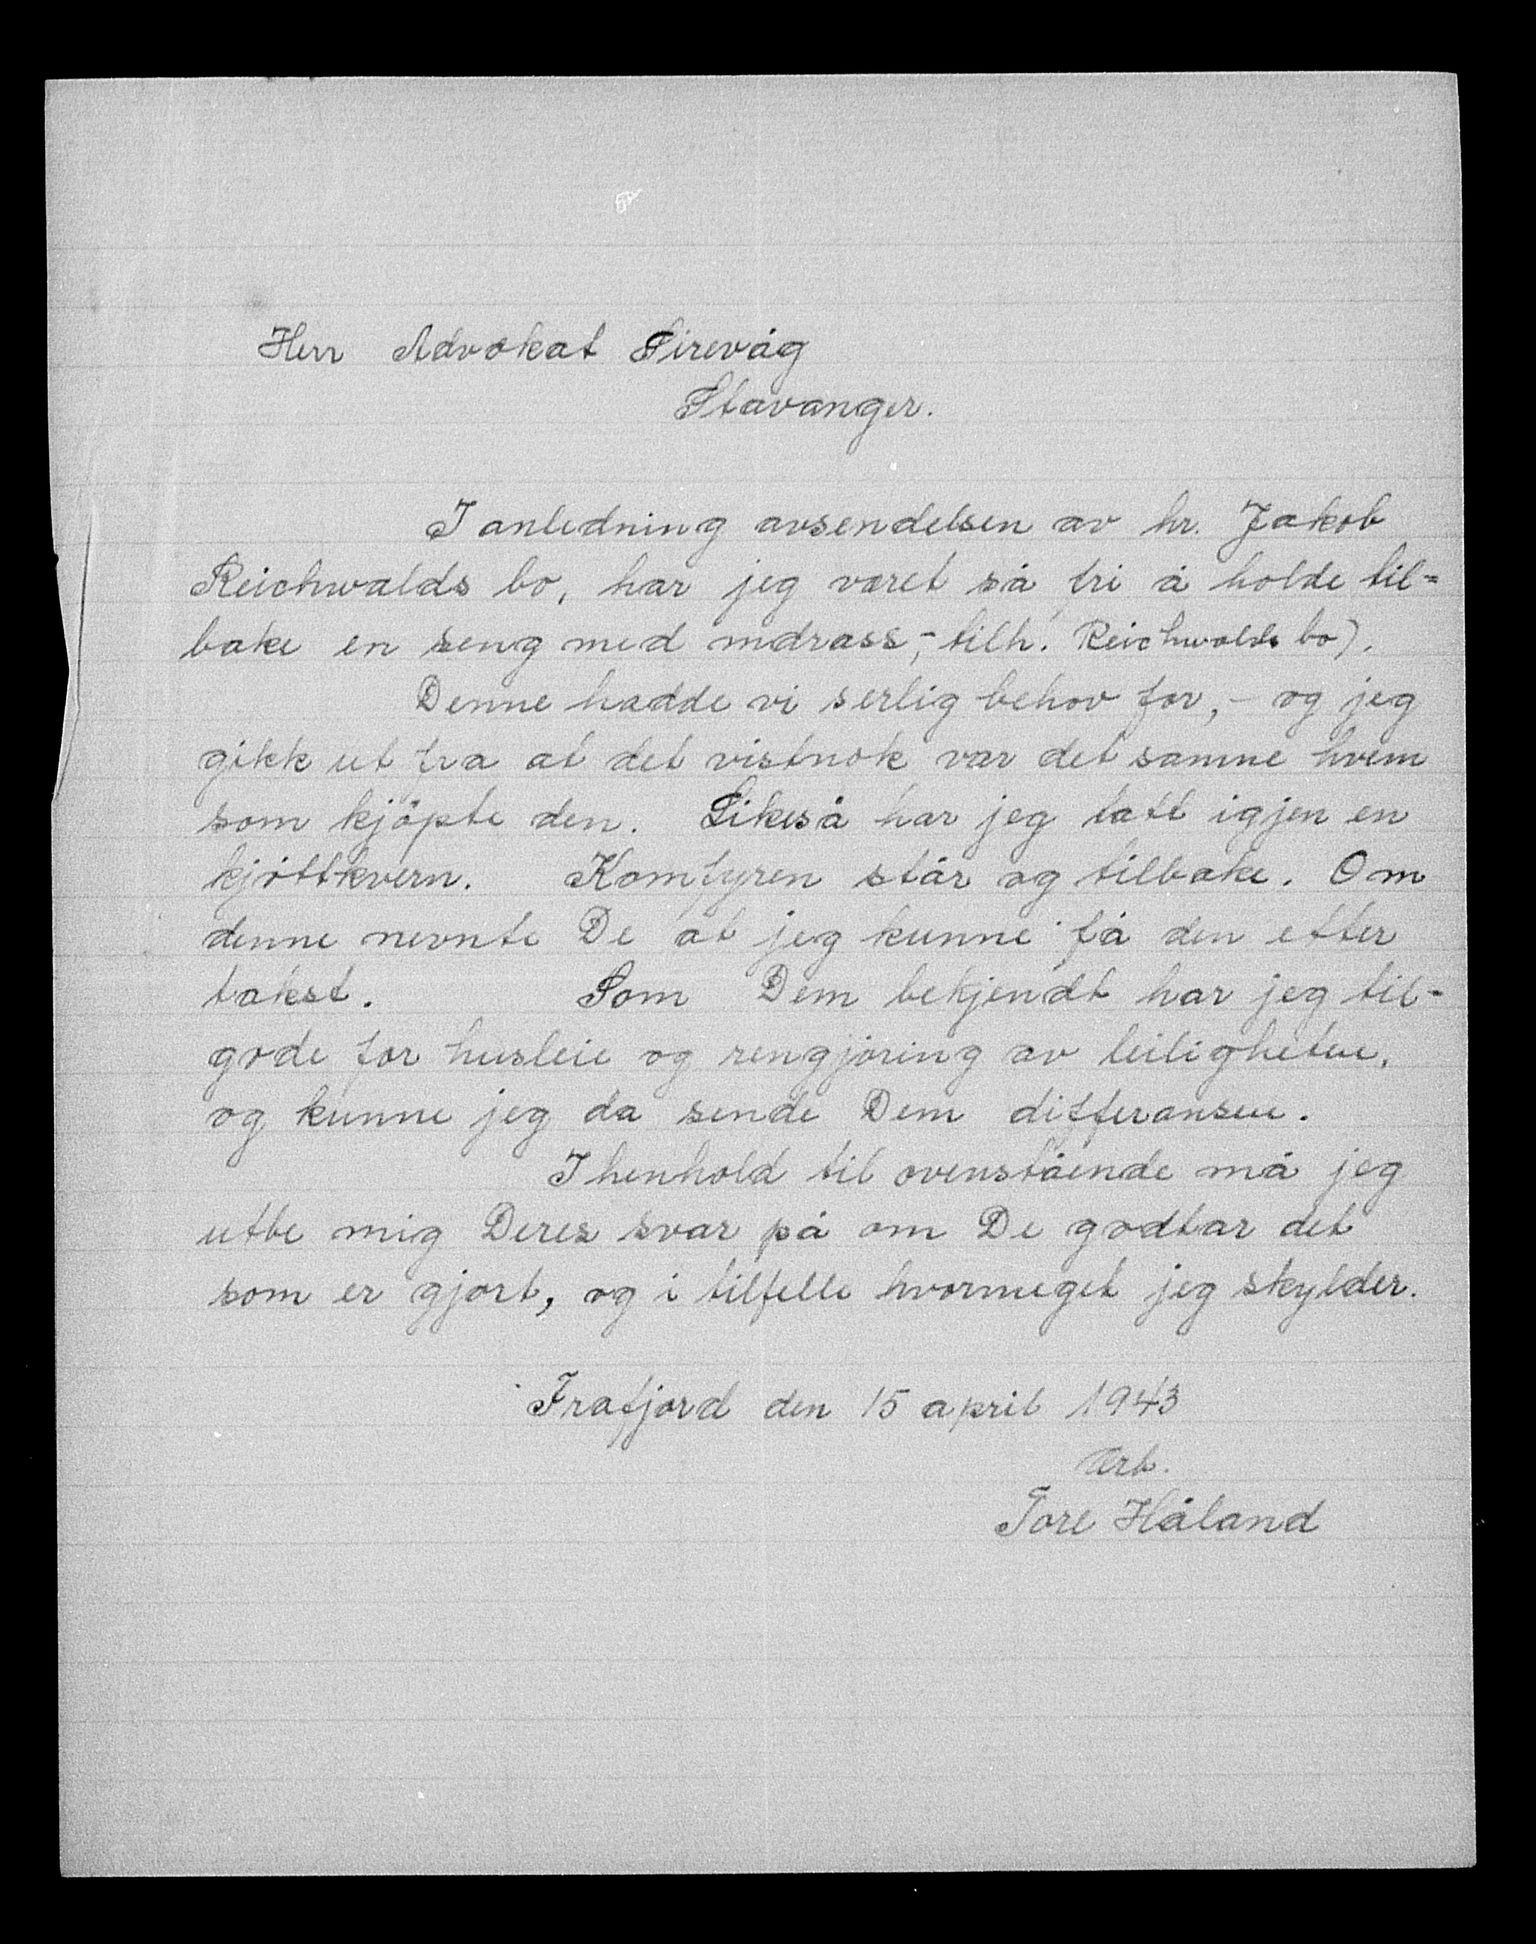 Herr Advokat Sirevåg
Stavanger.
I anledning avsendelsen av hr. Jakob
Reichwalds bo, har jeg været så fri å holde til=
bake en seng med mdrass,- tilh. Reichwalds bo).
Denne hadde vi serlig behov for,- og jeg
gikk ut fra at det vistnok var det samme hvem
som kjöpte den. Likeså har jeg tatt igjen en
kjöttkvern. Komfyren står og tilbake. Om
denne nevnte De at jeg kunne få den etter
takst. Som Dem bekjendt har jeg til-
gode for husleie og rengjöring av leiligheten,
og kunne jeg da sende Dem differansen.
I henhold til ovenstående må jeg
utbe mig Deres svar på om De godtar det
som er gjort, og i tilfelle hvormeget jeg skylder.
Frafjord den 15 april 1943
Ærb.
Tore Håland